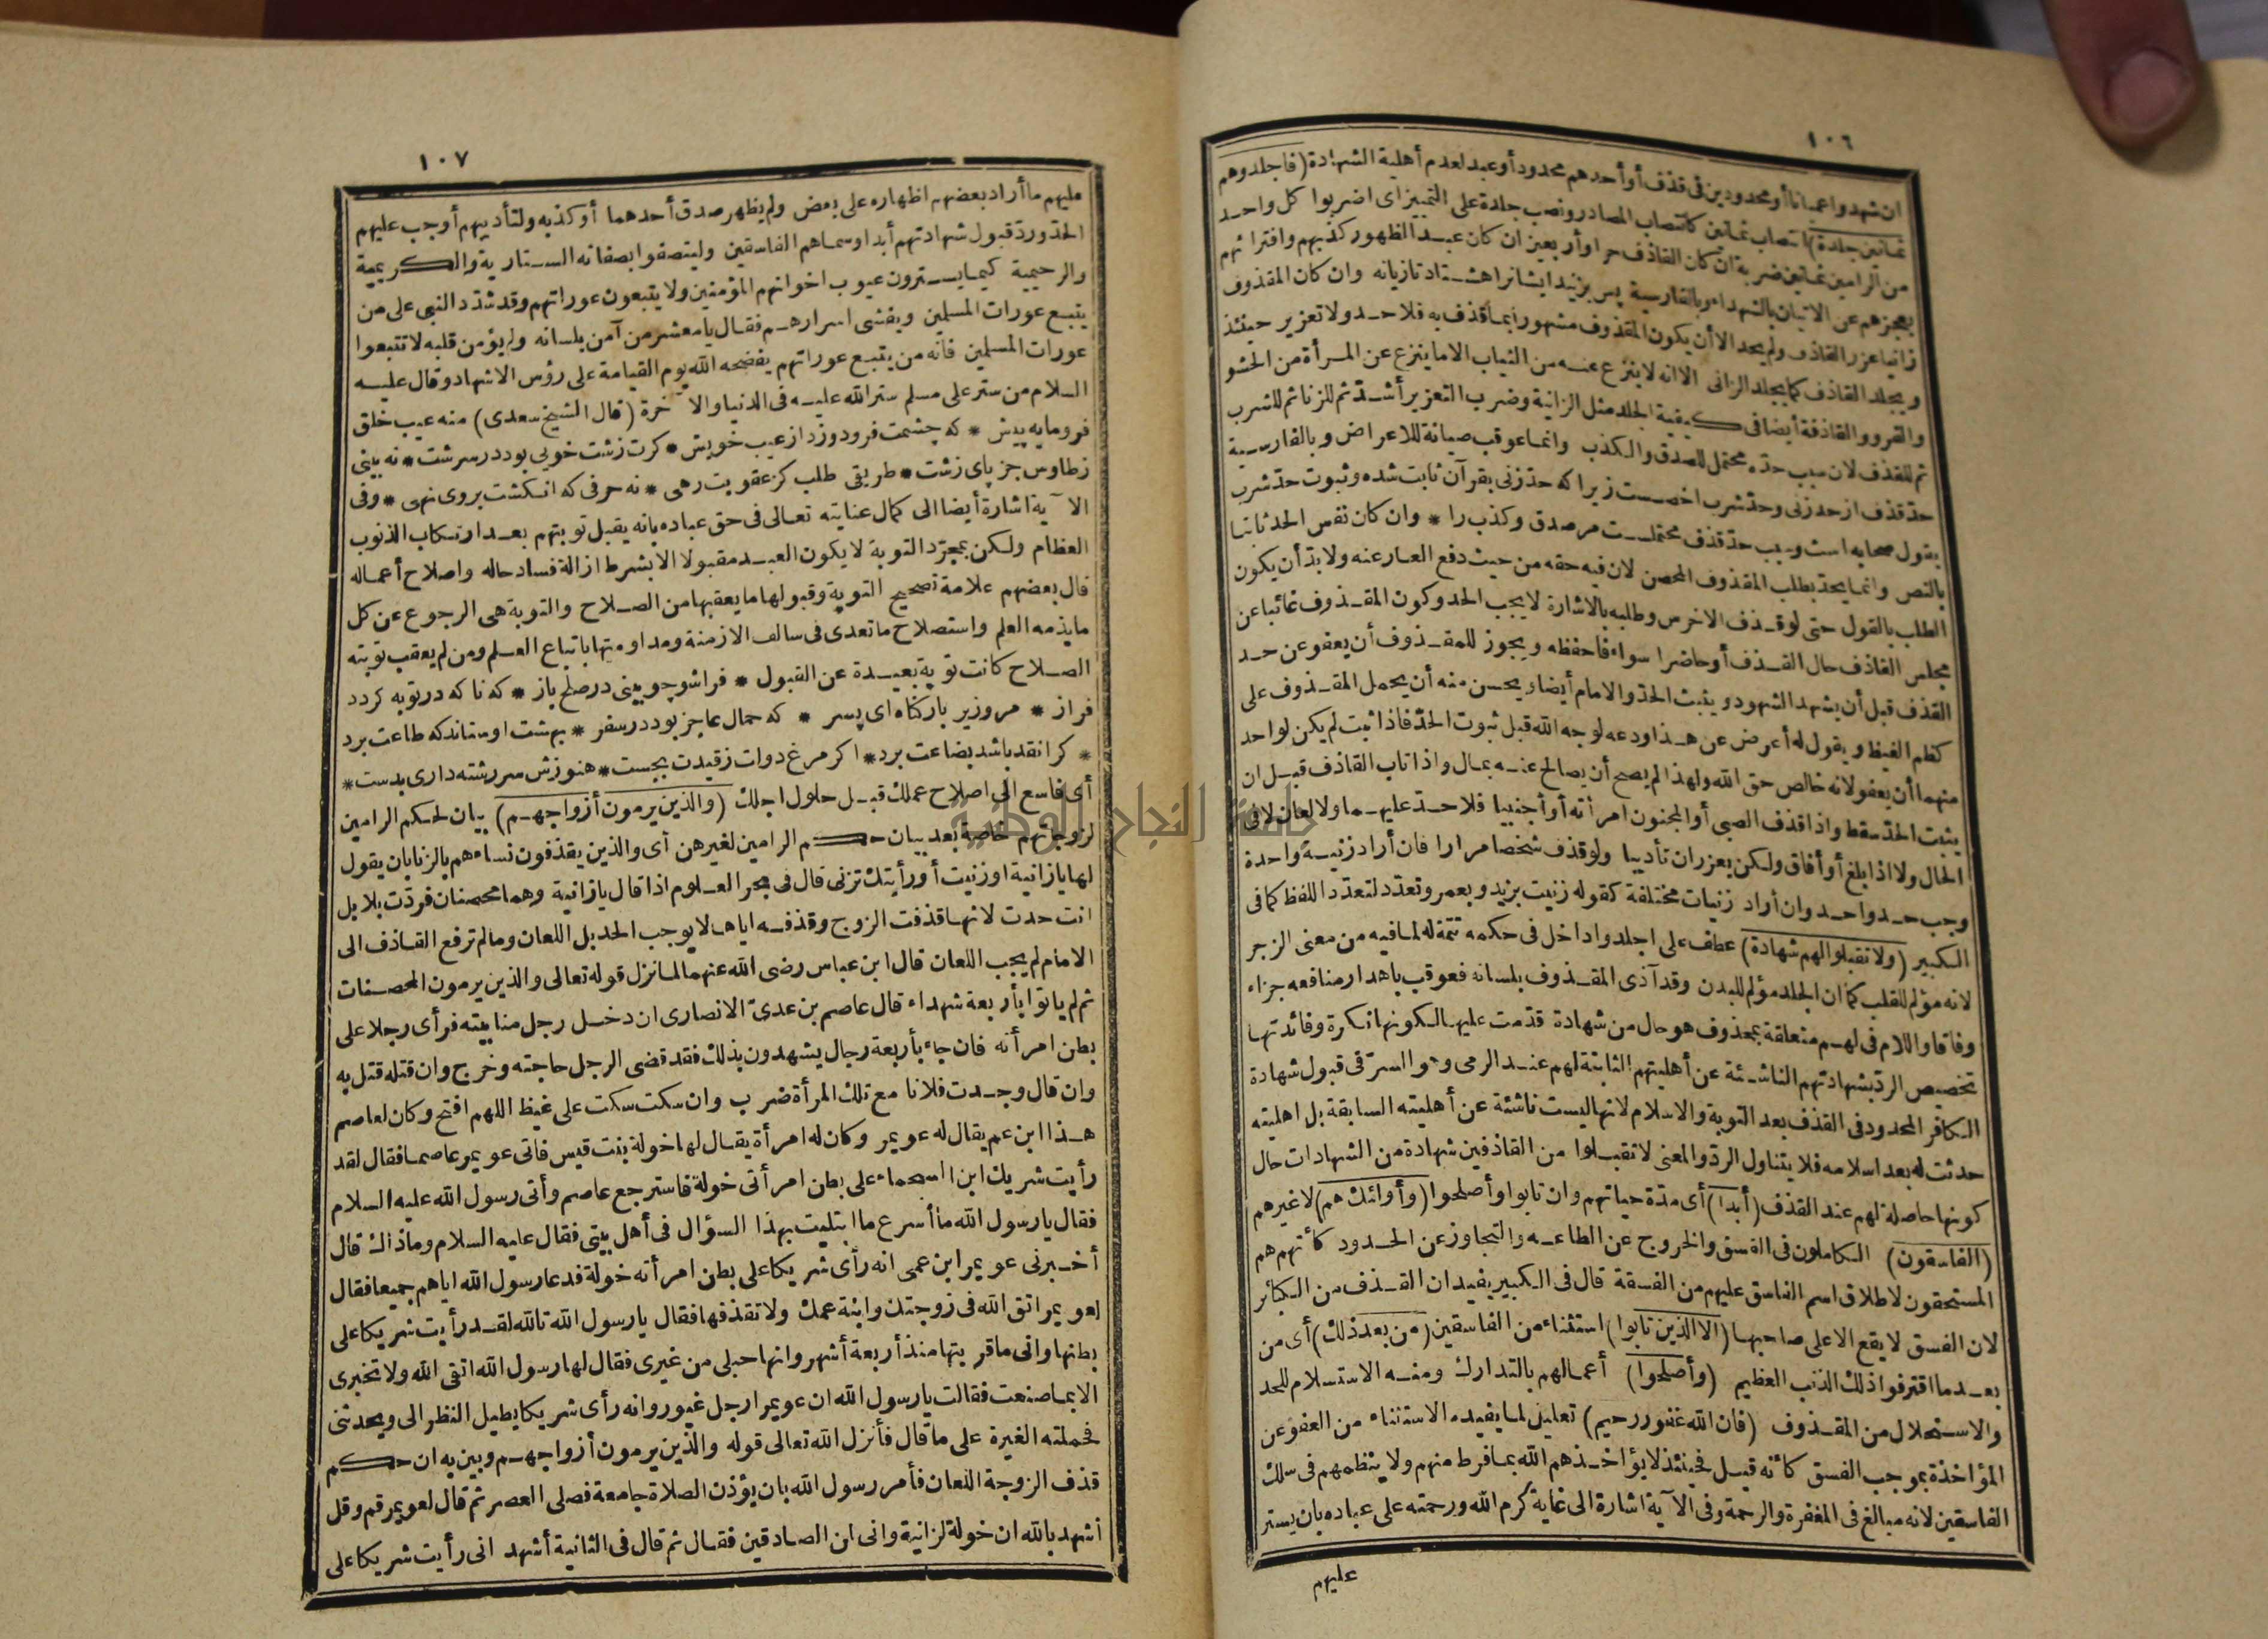 ١٠٦
ان شهدوا عميانا أو محدودين فى قذف أو أحدهم محدود أو عبد لعدم أهلية الشهادة (فاجلدوهم
ثمانين جلدة) انتصاب ثمانين كانتصاب المصادر ونصب جلدة على التمييز اى اضربوا كل واحد
من الرامين ثمانين ضربة ان كان القاذف حرا وأربعين ان كان عبدا لظهور كذبهم وافترائهم
بعجزهم عن الاتيان بالشهداء وبالفارسية پس بزنيد ايشانرا هشتاد تازيانه وان كان المقذوف
زانيا عزر القاذف ولم يحد الا أن يكون المقذوف مشهورا بما قذف به فلا حد ولا تعزير حينئذ
ويجلد القاذف كما يجلد الزانى الا انه لا ينزع عنه من الثياب الا ما ينزع عن المرأة من الحشو
والفرو والقاذفة أيضا فى كيفية الجلد مثل الزانية وضرب التعزير أشد ثم للزنا ثم للشرب
ثم للقذف لان سبب حده محتمل للصدق والكذب وانما عوقب صيانة للاعراض وبالفارسية
حد قذف از حد زنى وحد شرب اخفست زيرا كه حد زنى بقرآن ثابت شده وثبوت حد شرب
بقول صحابه است وسبب حد قذف محتملست مر صدق وكذب را * وان كان نفس الحد ثابتا
بالنص وانما يحد بطلب المقذوف المحصن لان فيه حقه من حيث دفع العار عنه ولا بد أن يكون
الطلب بالقول حتى لو قذف الاخرس وطلبه بالاشارة لا يجب الحد وكون المقذوف غائبا عن
مجلس القاذف حال القذف أو حاضرا سواء فاحفظه ويجوز للمقذوف أن يعفو عن حد
القذف قبل أن يشهد الشهود ويثبت الحد والامام أيضا ويحسن منه أن يحمل المقذوف على
كظم الغيظ ويقول له أعرض عن هذا ودعه لوجه الله قبل ثبوت الحد فاذا ثبت لم يكن لواحد
منهما أن يعفو لانه خالص حق الله ولهذا لم يصح أن يصالح عنه بمال واذا تاب القاذف قبل ان
يثبت الحد سقط واذا قذف الصبى أو المجنون امرأته أو أجنبيا فلا حد عليهما ولا لعان لا فى
الحال ولا اذا بلغ أو أفاق ولكن يعزران تأديبا ولو قذف شخصا مرارا فان أراد زنية واحدة
وجب حد واحد وان أراد زنيات مختلفة كقوله زنيت بزيد وبعمرو تعدد لتعدد اللفظ كما فى
الكبير (ولا تقبلوا لهم شهادة) عطف على اجلدوا داخل فى حكمه تتمة له لما فيه من معنى الزجر
لانه مؤلم للقلب كما ان الجلد مؤلم للبدن وقد آذى المقذوف بلسانه فعوقب باهدار منافعه جزاء
وفاقا واللام فى لهم متعلقة بمحذوف هو حال من شهادة قدمت عليها لكونها نكرة وفائدتها
تخصيص الرد بشهادتهم الناشئة عن أهليتهم الثابتة لهم عند الرمى وهو السر فى قبول شهادة
الكافر المحدود فى القذف بعد التوبة والاسلام لانها ليست ناشئة عن أهليته السابقة بل اهليته
حدثت له بعد اسلامه فلا يتناول الرد والمعنى لا تقبلوا من القاذفين شهادة من الشهادات حال
كونها حاصلة لهم عند القذف (أبدا) أى مدة حياتهم وان تابوا وأصلحوا (وأولئك هم) لا غيرهم
(الفاسقون) الكاملون فى الفسق والخروج عن الطاعه والتجاوز عن الحدود كأنهم هم
المستحقون لاطلاق اسم الفاسق عليهم من الفسقة قال فى الكبير يفيد ان القذف من الكبائر
لان الفسق لا يقع الا على صاحبها (الا الذين تابوا) استثناء من الفاسقين (من بعد ذلك) أى من
بعد ما اقترفوا ذلك الذنب العظيم (وأصلحوا) أعمالهم بالتدارك ومنه الاستسلام للحد
والاستحلال من المقذوف (فان الله غفور رحيم) تعليل لما يفيده الاستثناء من العفو عن
المؤاخذة بموجب الفسق كأنه قيل فحينئذ لا يؤاخذهم الله بما فرط منهم ولا ينظمهم فى سلك
الفاسقين لانه مبالغ فى المغفرة والرحمة وفى الآية اشارة الى غاية كرم الله ورحمته على عباده بان يستر
عليهم
١٠٧
عليهم ما أراد بعضهم اظهاره على بعض ولم يظهر صدق أحدهما أو كذبه ولتأديبهم أوجب عليهم
الحد ورد قبول شهادتهم أبدا وسماهم الفاسقين وليتصفوا بصفاته الستارية والكريمية
والرحيمية كيما يسترون عيوب اخوانهم المؤمنين ولا يتبعون عوراتهم وقد شدد النبى على من
يتبع عورات المسلمين ويفشى اسرارهم فقال يا معشر من آمن بلسانه ولم يؤمن قلبه لا تتبعوا
عورات المسلمين فانه من يتبع عوراتهم يفضحه الله يوم القيامة على رؤس الاشهاد وقال عليه
السلام من ستر على مسلم ستر الله عليه فى الدنيا والآخرة (قال الشيخ سعدى) منه عيب خلق
فرومايه پيش * كه چشمت فرو دوزد از عيب خويش * كرت زشت خويى بود در سرشت * نه بينى
زطاوس جز پاى زشت * طريقى طلب كز عقوبت رهى * نه حرفى كه انكشت بروى نهى * وفى
الآية اشارة أيضا الى كمال عنايته تعالى فى حق عباده بانه يقبل توبتهم بعد ارتكاب الذنوب
العظام ولكن بمجرد التوبة لا يكون العبد مقبولا الا بشرط ازالة فساد حاله واصلاح أعماله
قال بعضهم علامة تصحيح التوبة وقبولها ما يعقبها من الصلاح والتوبة هى الرجوع عن كل
ما يذمه العلم واستصلاح ما تعدى فى سالف الازمنة ومداومتها باتباع العلم ومن لم يعقب توبته
الصلاح كانت توبة بعيدة عن القبول * فراشو چو بينى در صلح باز * كه ناكه در توبه كردد
فراز * مرو زير بار كناه اى پسر * كه حمال عاجز بود در سفر * بهشت اوستاند كه طاعت برد
* كرا نقد باشد بضاعت برد * اكر مرغ دوات زقيدت بجست * هنوزش سر رشته دارى بدست *
أى فاسع الى اصلاح عملك قبل حلول اجلك (والذين يرمون أزواجهم) بيان لحكم الرامين
لزوجاتهم خاصة بعد بيان حكم الرامين لغيرهن أى والذين يقذفون نساءهم بالزنا بان يقول
لها يا زانية او زنيت أو رأيتك تزنى قال فى بحر العلوم اذا قال يا زانية وهما محصنان فردت بلا بل
انت حدت لانها قذفت الزوج وقذفه اياها لا يوجب الحد بل اللعان وما لم ترفع القاذف الى
الامام لم يجب اللعان قال ابن عباس رضى الله عنهما لما نزل قوله تعالى والذين يرمون المحصنات
ثم لم ياتوا بأربعة شهداء قال عاصم بن عدى الانصارى ان دخل رجل منا بيته فرأى رجلا على
بطن امرأته فان جاء بأربعة رجال يشهدون بذلك فقد قضى الرجل حاجته وخرج وان قتله قتل به
وان قال وجدت فلانا مع تلك المرأة ضرب وان سكت سكت على غيظ اللهم افتح وكان لعاصم
هذا ابن عم يقال له عويمر وكان له امرأة يقال لها خولة بنت قيس فاتى عويمر عاصما فقال لقد
رأيت شريك ابن السحماء على بطن امرأتى خولة فاسترجع عاصم وأتى رسول الله عليه السلام
فقال يا رسول الله ما أسرع ما ابتليت بهذا السؤال فى أهل بيتى فقال عليه السلام وما ذاك قال
أخبرنى عويمر ابن عمى انه رأى شريكا على بطن امرأته خولة فدعا رسول الله اياهم جميعا فقال
لعويمر اتق الله فى زوجتك وابنة عمك ولا تقذفها فقال يا رسول الله تالله لقد رأيت شريكا على
بطنها وانى ما قربتها منذ أربعة أشهر وانها حبلى من غيرى فقال لها رسول الله اتقى الله ولا تخبرى
الا بما صنعت فقالت يا رسول الله ان عويمرا رجل غيور وانه رأى شريكا يطيل النظر الى ويحدثنى
فحملته الغيرة على ما قال فأنزل الله تعالى قوله والذين يرمون أزواجهم وبين به ان حكم
قذف الزوجة اللعان فأمر رسول الله بان يؤذن الصلاة جامعة فصلى العصر ثم قال لعويمر قم وقل
أشهد بالله ان خولة لزانية وانى لمن الصادقين فقال ثم قال فى الثانية أشهد انى رأيت شريكا على
جامعة النجاح الوطنية